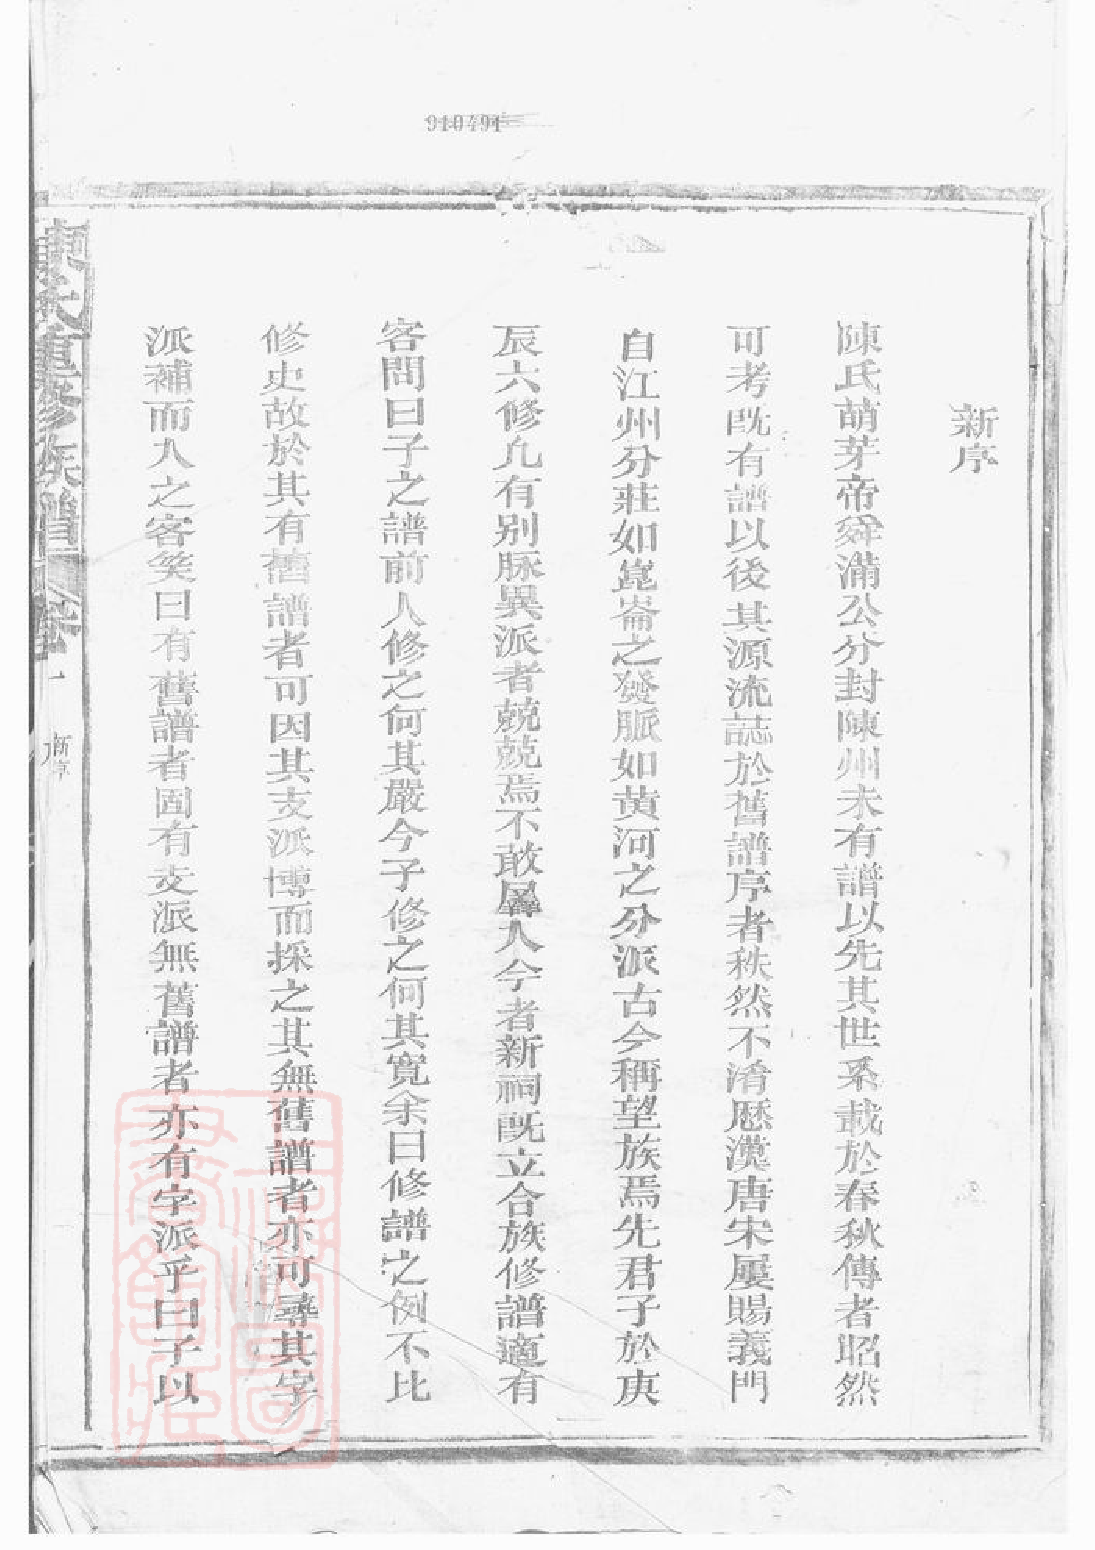 910491
新序
陳氏萌芽帝舜滿公分封陳州未有譜以先其世系載於春秋傳者昭然
可考既有譜以後其源流誌於舊譜序者秩然不淆歷漢唐宋屢賜義門
自江州分莊如崑崙之發脈如黄河之分派古今稱望族焉先君子於庚
辰六修凢有别脉異派者兢兢焉不敢羼入今者新祠既立合族修譜適有
客問曰子之譜前人修之何其嚴今子修之何其寬余曰修譜之例不比
修史故於其有舊譜者可因其支派博而採之其無舊譜者亦可尋其字
派補而入之客笑曰有舊譜者固有支派無舊譜者亦有字派乎曰子以
陳氏重修族譜 卷一 新序